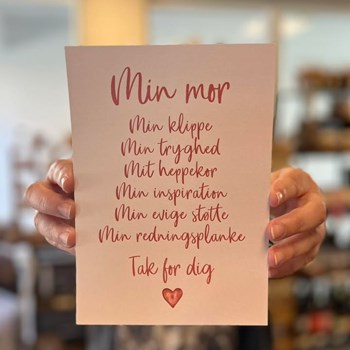 Min mor
Min klippe
Min tryghed
Mit heppekor
Min inspiration
Min evige støtte
Min redningsplanke
Tak for dig